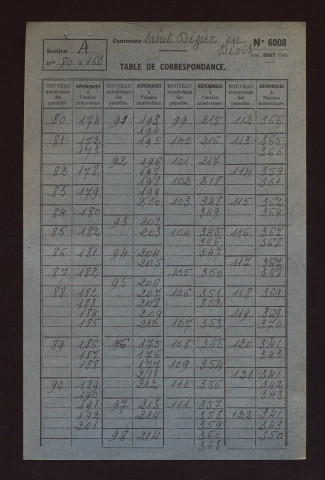 Commune Saint Dizier en Diois
N° 6008
Section A
nos 80 à 153
TABLE DE CORRESPONDANCE.
NOUVEAU numérotage des parcelles. RÉFÉRENCES à l'ancien numérotage NOUVEAU numérotage des parcelles. RÉFÉRENCES à l'ancien numérotage NOUVEAU numérotage des parcelles. RÉFÉRENCES à l'ancien numérotage NOUVEAU numérotage des parcelles. RÉFÉRENCES à l'ancien numérotage
80 174 193 99 215 112 366
194
81 172 195 100 216 113 365
173 366
92 196 101 217
82 178 197 114 359
198 102 218 361
83 179 199
200 103 348 115 362
84 180 349 364
93 202
85 182 203 104 345 116 367
346 368
86 181 94 204 347
205 117
87 182 105 350
95 206
88 182 207 106 351 118 369
183 208 352
184 209 119 369
185 107 353 370
89 186 96 175 108 355 120 341
187 176 343
188 109 354
90 189 212 110 356 342
190 343
191 97 213 111 357
192 214 358 122 341
201 359 343
98 214 360 350